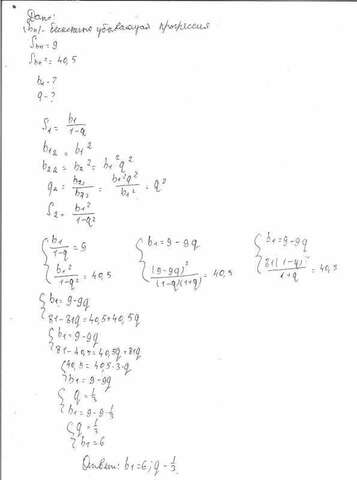 Дано:
(bn) - бесконечно убывающая прогрессия
Sbn = 9
Sbn² = 40,5
b1 - ?
q - ?
S1 = b1/(1-q)
b12 = b1²
b22 = b2² = b1²q²
q2 = b22/b12 = b1²q²/b1² = q²
S2 = b1²/(1-q²)
{ b1/(1-q) = 9 { b1 = 9 - 9q { b1 = 9 - 9q
b1²/(1-q²) = 40,5 (9-9q)²/((1-q)(1+q)) = 40,5 81(1-q)/(1+q) = 40,5
{ b1 = 9 - 9q
81 - 81q = 40,5 + 40,5q
{ b1 = 9 - 9q
81 - 40,5 = 40,5q + 81q
{ 40,5 = 40,5·3·q
b1 = 9 - 9q
{ q = 1/3
b1 = 9 - 9·1/3
{ q = 1/3
b1 = 6
Ответ: b1 = 6; q - 1/3.